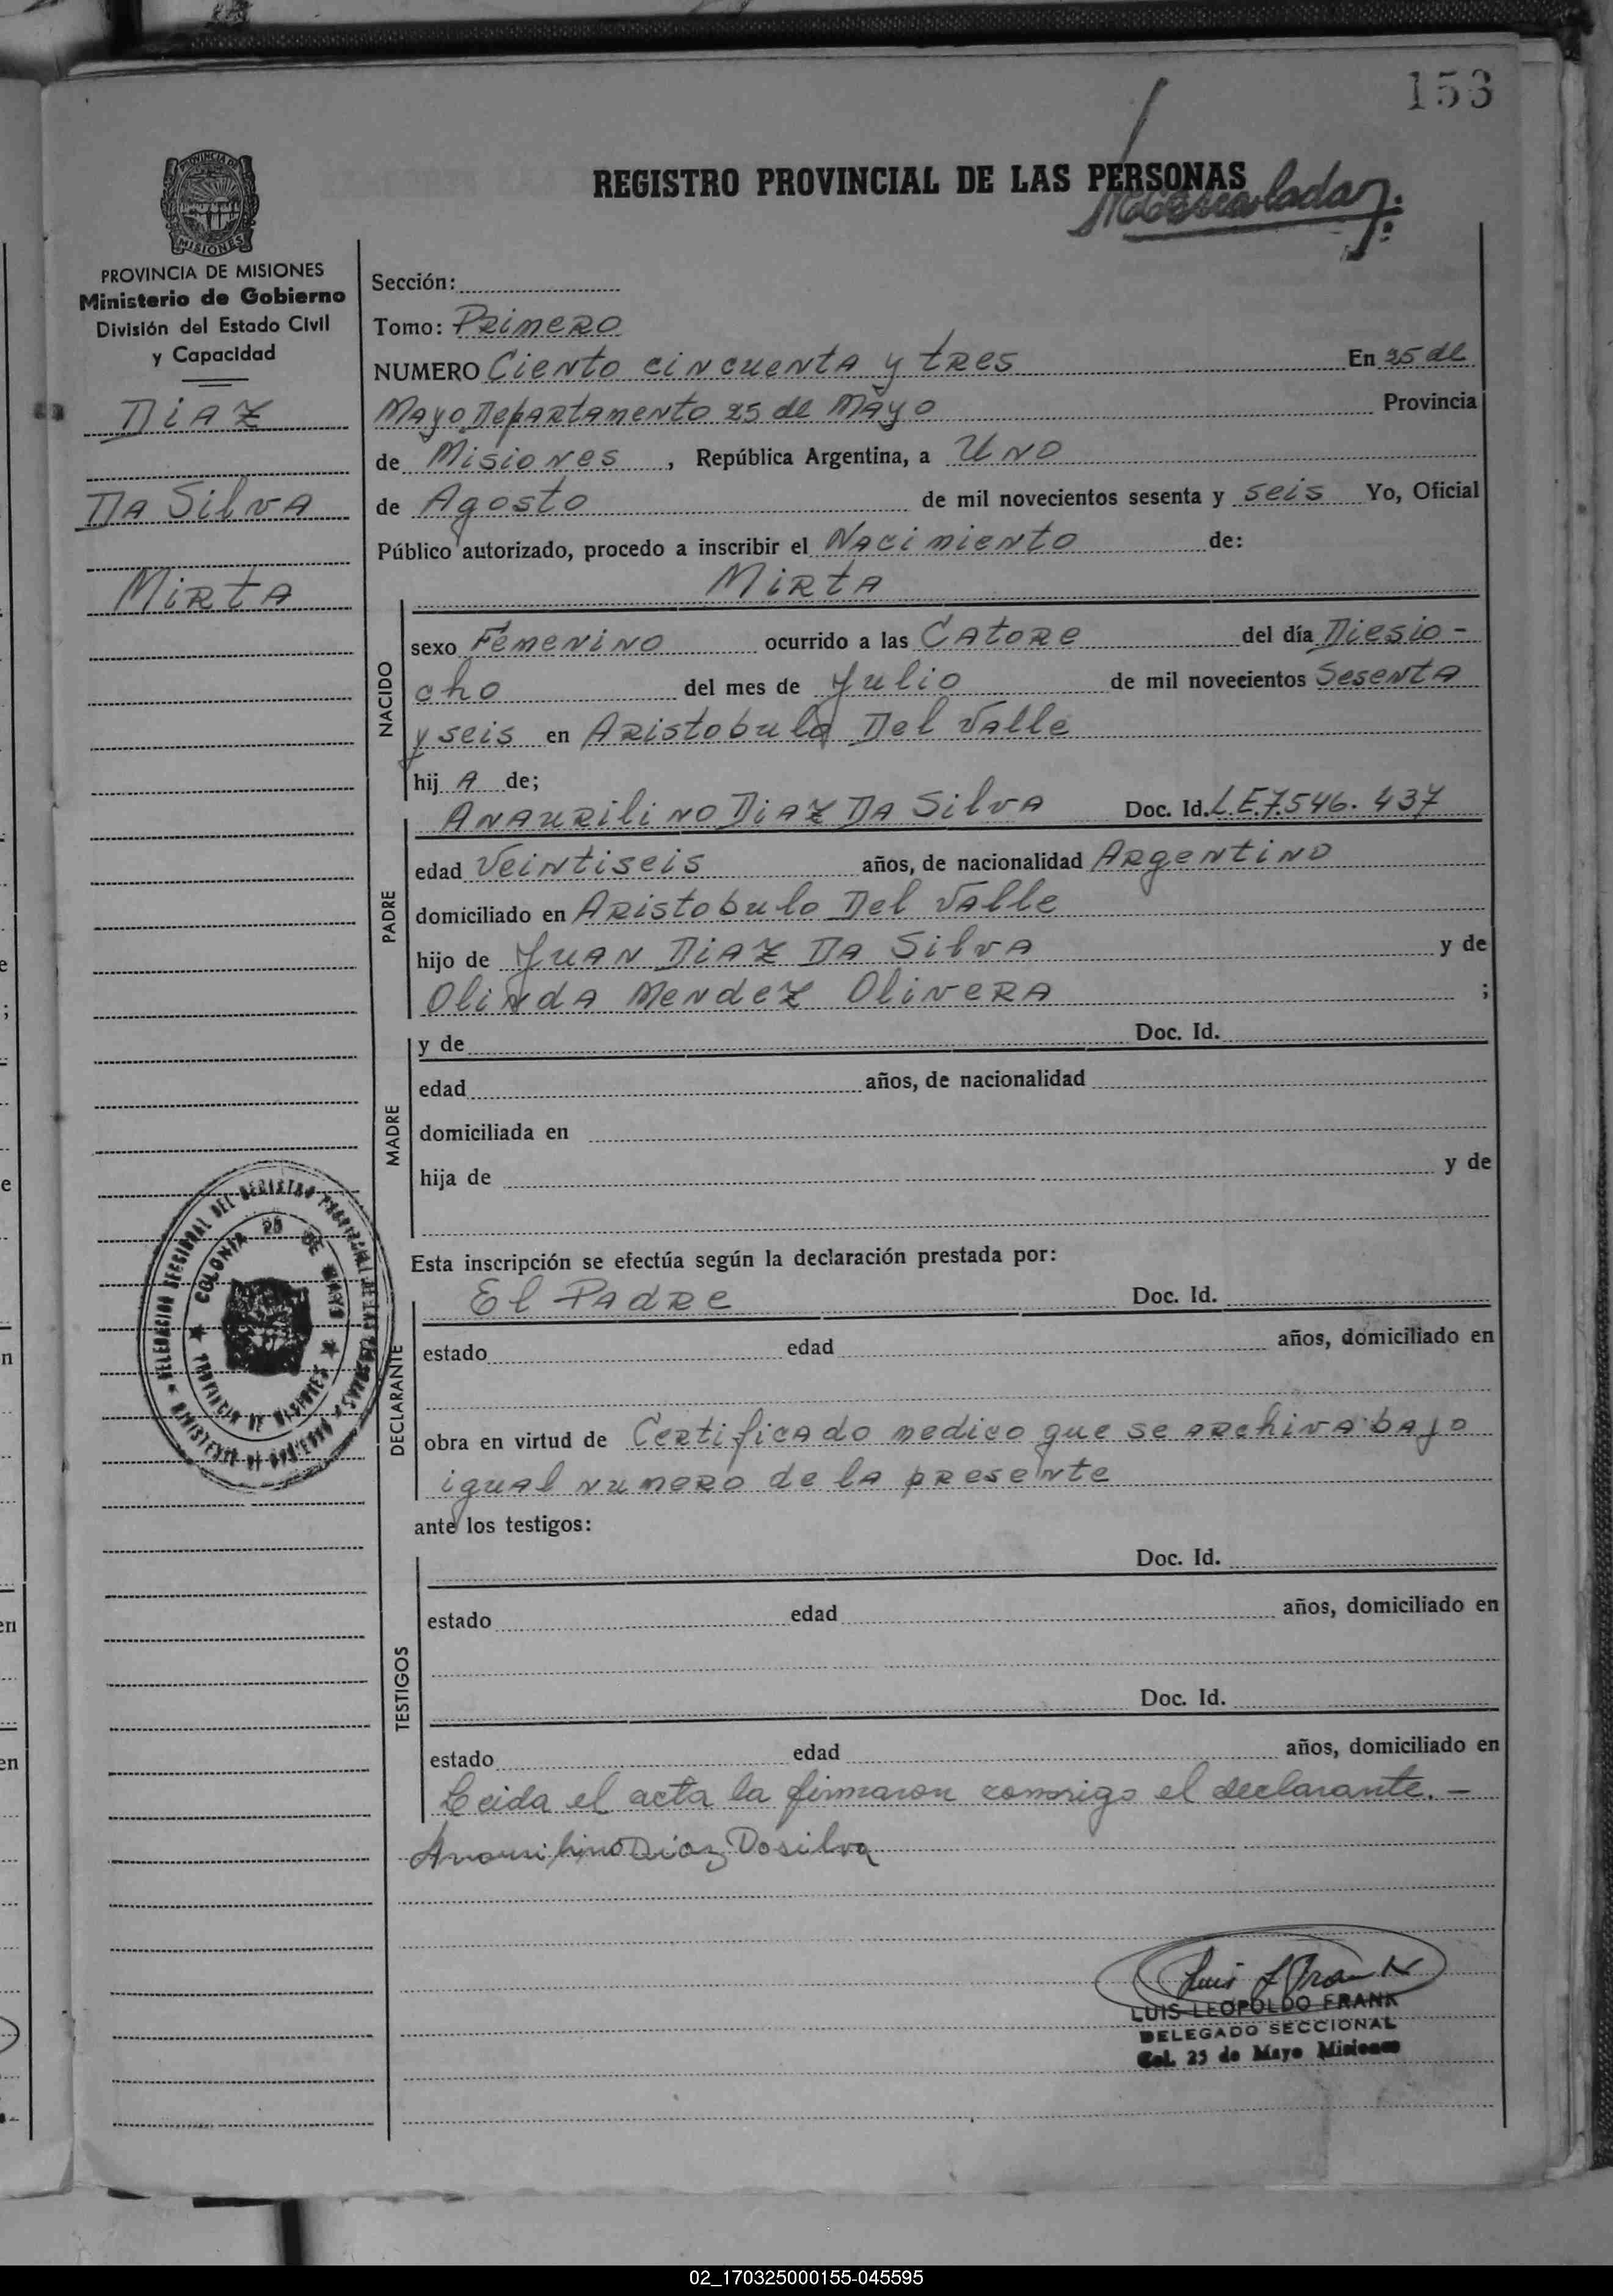 153
REGISTRO PROVINCIAL DE LAS PERSONAS
PROVINCIA DE
MISIONES
PROVINCIA DE MISIONES
Ministerio de Gobierno
División del Estado Civil
y Capacidad
DiAZ
DA SilvA
MiRtA
Sección:
Tomo: PRimeRO
NUMERO Ciento cincuentA y tRes En 25 de
Mayo DepARtAmento 25 de MAyo Provincia
de Misiones, República Argentina, a UNO
de Agosto de mil novecientos sesenta y seis Yo, Oficial
Público autorizado, procedo a inscribir el NAcimiento de:
MiRtA
NACIDO
sexo Femenino ocurrido a las CAtoRe del día Diesio-
cho del mes de Julio de mil novecientos SesentA
y seis en ARistobulo Del VAlle
hij A de;
PADRE
ANAURiliNO DiAZ DA SilvA Doc. Id. L.E.7.546.437
edad Veintiseis años, de nacionalidad ARgentino
domiciliado en ARistobulo Del VAlle
hijo de JUAN DiAZ DA SilvA y de
OlindA MendeZ OliveRA ;
MADRE
y de Doc. Id.
edad años, de nacionalidad
domiciliada en
hija de y de
Esta inscripción se efectúa según la declaración prestada por:
DECLARANTE
El PAdRe Doc. Id.
estado edad años, domiciliado en
obra en virtud de CeRtificAdo medico que se ARchivA bAjo
iguAl numeRo de lA pResente
ante los testigos:
TESTIGOS
Doc. Id.
estado edad años, domiciliado en
Doc. Id.
estado edad años, domiciliado en
Leida el acta la firmaron conmigo el declarante.-
Anaurilino Diaz Dasilva
DELEGACION SECCIONAL DEL REGISTRO PROVINCIAL DE LAS PERSONAS
MINISTERIO DE GOBIERNO
COLONIA 25 DE MAYO
PROVINCIA DE MISIONES
Luis L Frank
LUIS LEOPOLDO FRANK
DELEGADO SECCIONAL
Col. 25 de Mayo Misiones
02_170325000155-045595